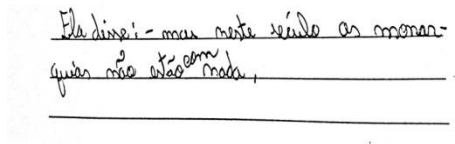 Ela disse: - mas neste século as monar-
quias não estão com nada,